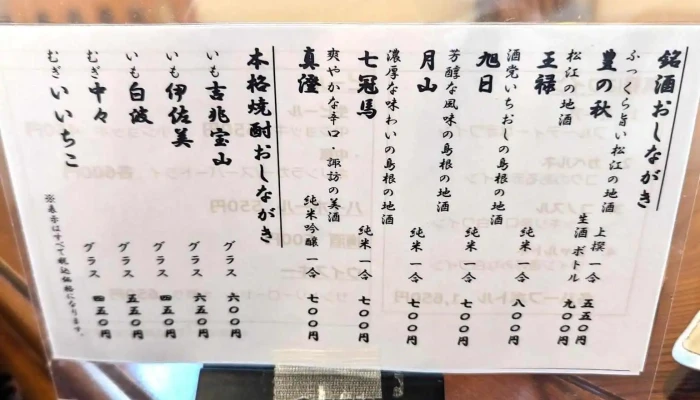 銘酒おしながき
ふっくら旨い松江の地酒
豊の秋 上撰 一合 五五〇円
生酒 ボトル 九〇〇円
松江の地酒
王禄 純米 一合 八〇〇円
酒党いちおしの島根の地酒
旭日 純米 一合 七〇〇円
芳醇な風味の島根の地酒
月山 純米 一合 七〇〇円
濃厚な味わいの島根の地酒
七冠馬 純米 一合 七〇〇円
爽やかな辛口・諏訪の美酒
真澄 純米吟醸 一合 七〇〇円
本格焼酎おしながき
いも 吉兆宝山 グラス 六〇〇円
いも 伊佐美 グラス 六五〇円
いも 白波 グラス 四五〇円
むぎ 中々 グラス 五五〇円
むぎ いいちこ グラス 四五〇円
※表示はすべて税込価格になります。